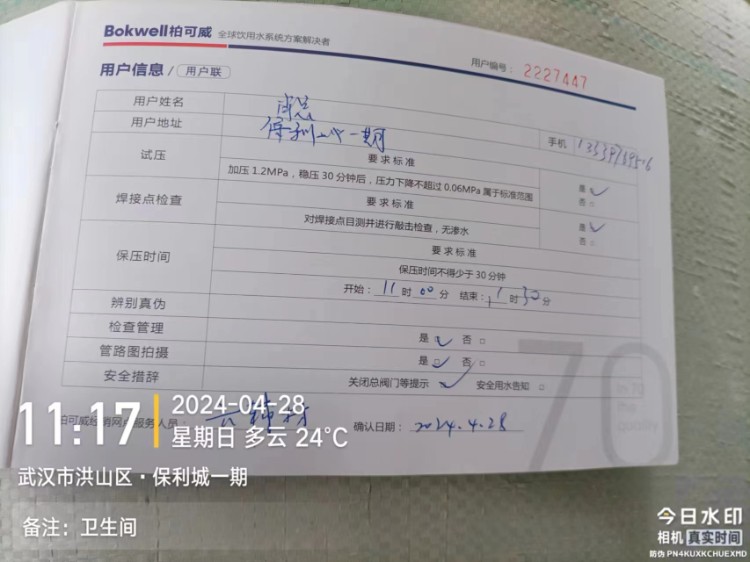 Bokwell柏可威 全球饮用水系统方案解决者
用户编号: 2227447
用户信息 / 用户联
用户姓名
用户地址 保利城一期 手机
试压 要求标准
加压1.2MPa，稳压30分钟后，压力下降不超过0.06MPa属于标准范围 是 ✓ 否
焊接点检查 要求标准
对焊接点目测并进行敲击检查，无渗水 是 ✓ 否
保压时间 要求标准
保压时间不得少于30分钟
开始: 11 时 00 分 结束: 11 时 30 分
辨别真伪
检查管理 是 ✓ 否 □
管路图拍摄 是 ✓ 否 □
安全措辞 关闭总阀门等提示 ✓ 安全用水告知 □
柏可威经销网点服务人员: 确认日期: 2024.4.28
70
in 70
the
quality
11:17
2024-04-28
星期日 多云 24°C
武汉市洪山区·保利城一期
备注: 卫生间
今日水印
相机 真实时间
防伪 PN4KUXKCHUEXMD